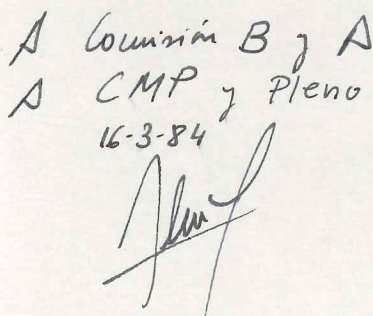 A Comisión B y A
A CMP y Pleno
16-3-84